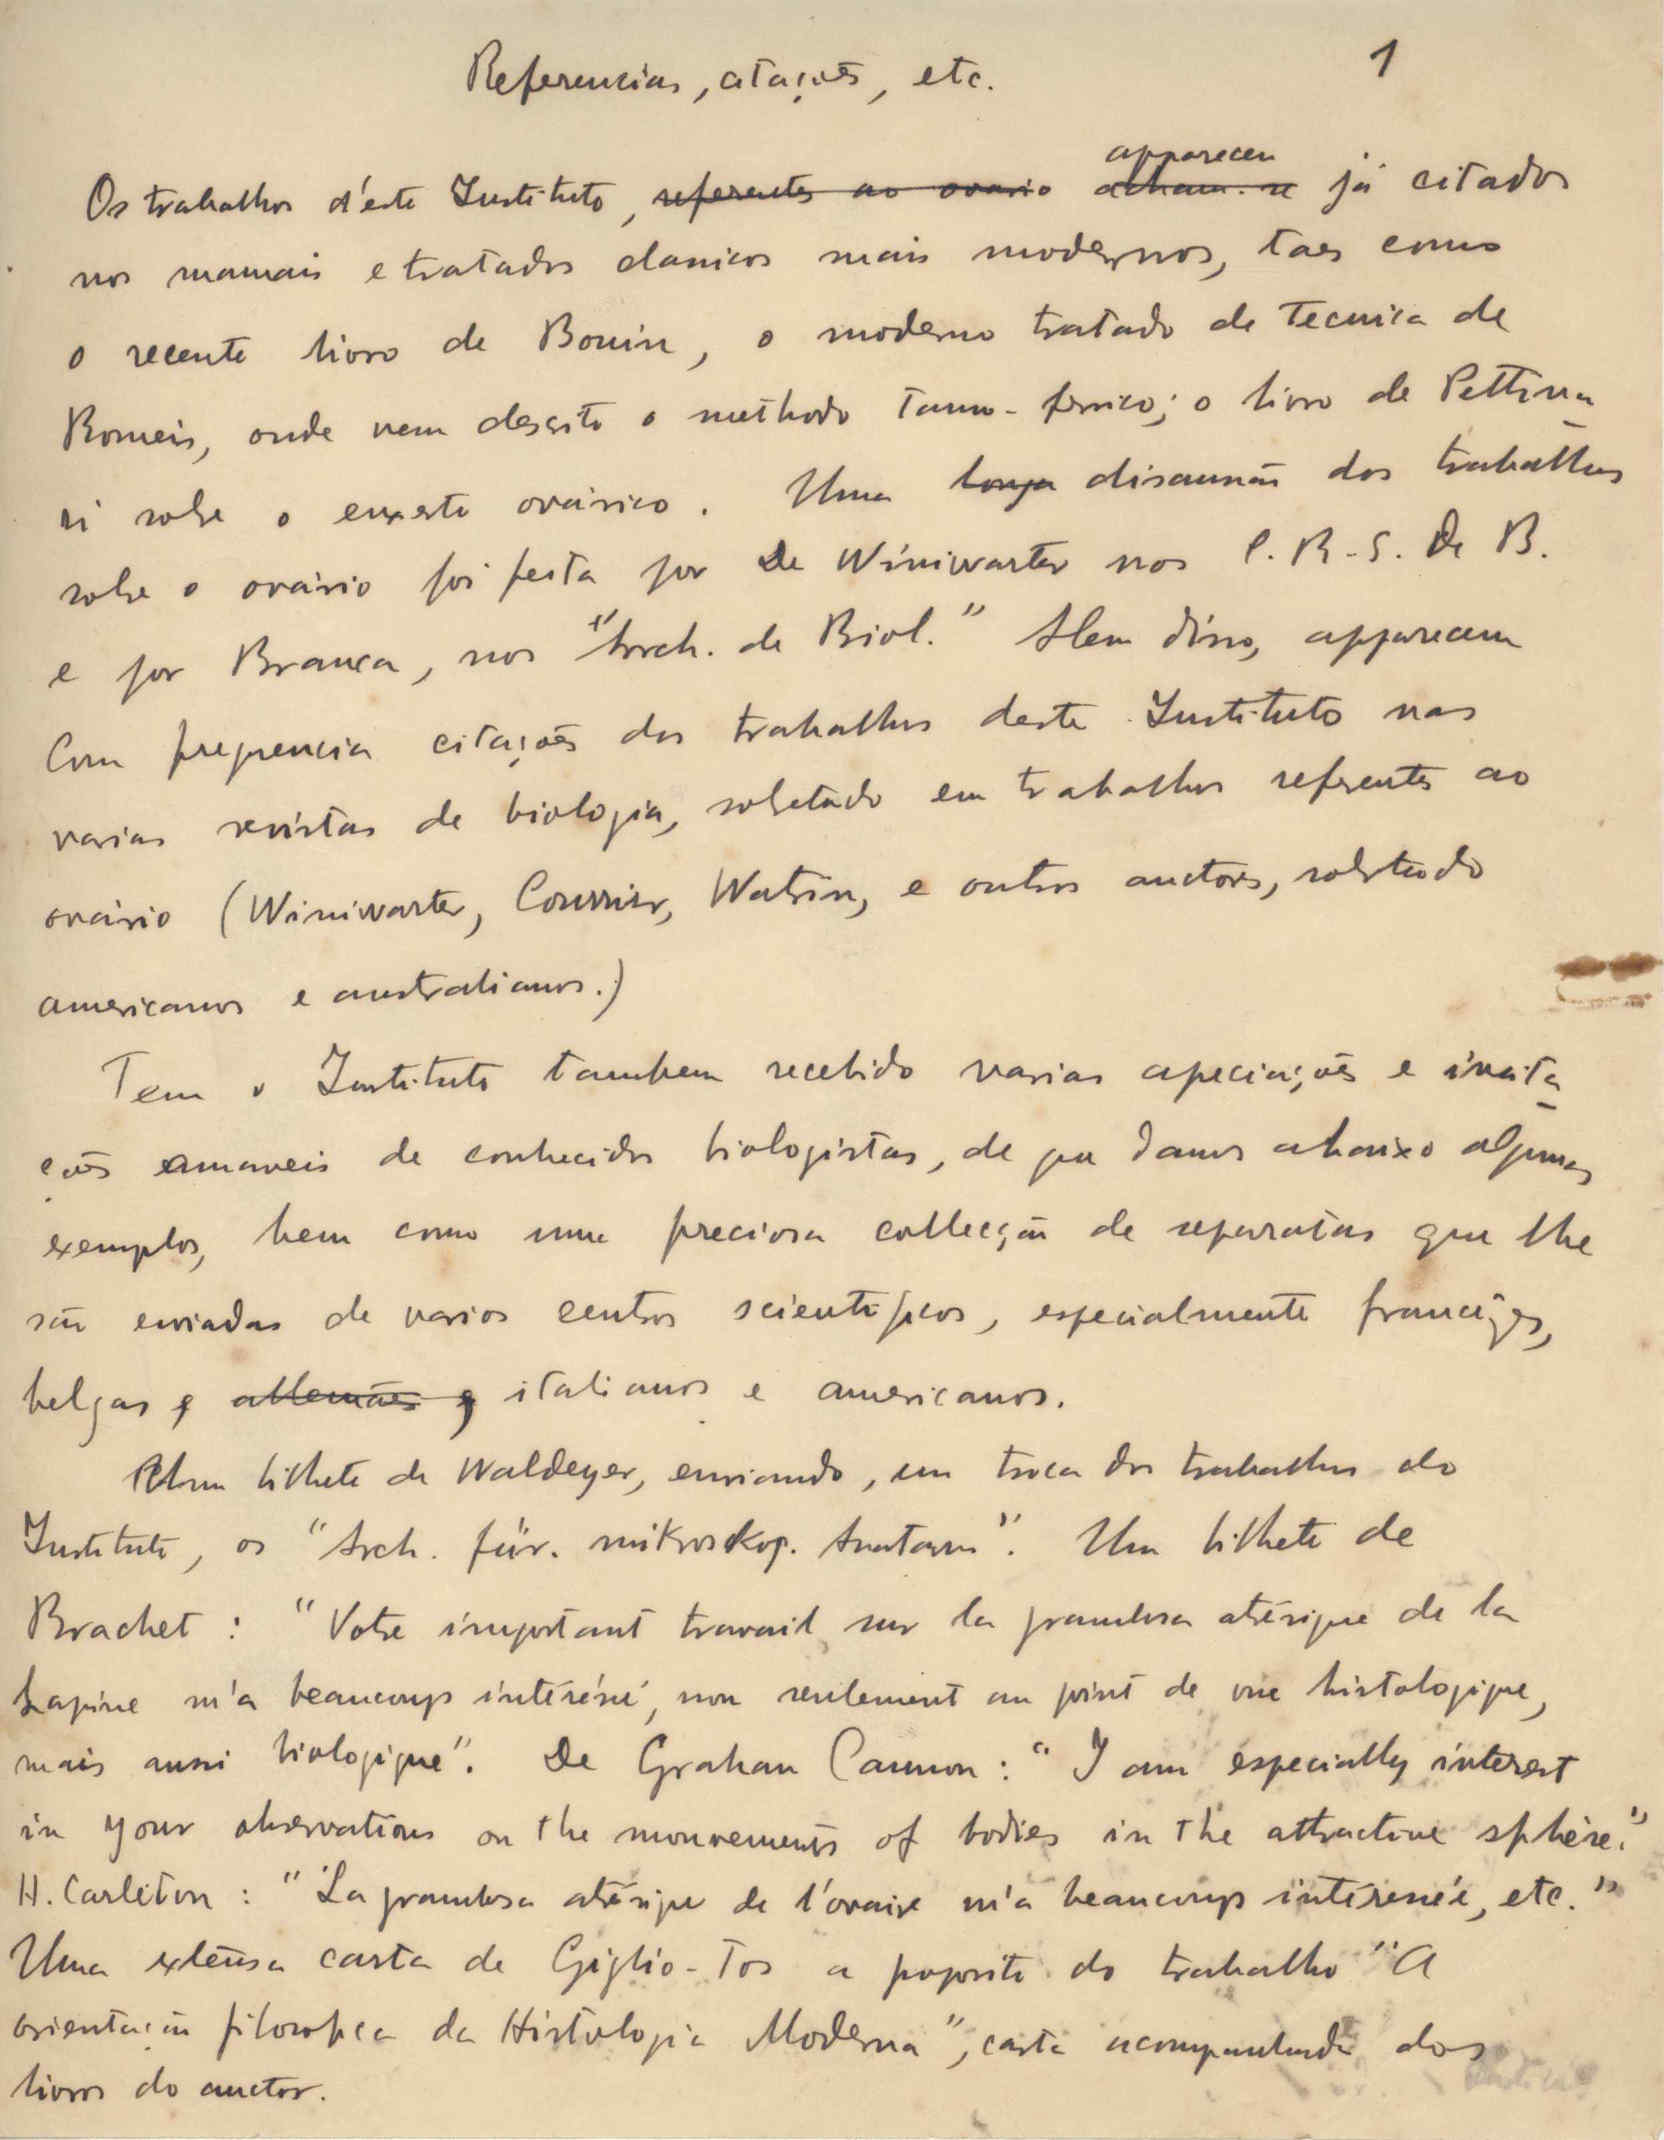 Referencias, citações, etc. 1
Os trabalhos d'este Instituto, ~~referentes ao ovario~~ ~~acham-se~~ apparecem já citados
nos manuais e tratados classicos mais modernos, taes como
o recente livro de Bouin, o moderno tratado de tecnica de
Romeis, onde vem descrito o methodo tanno-ferrico; o livro de Pettina
ri sobre o enxerto ovárico. Uma ~~longa~~ discussão dos trabalhos
sobre o ovário foi feita por De Winiwarter nos C.R.S. de B.
e por Branca, nos "Arch. de Biol." Alem disso, apparecem
com frequencia citações dos trabalhos deste Instituto nas
varias revistas de biologia, sobretudo em trabalhos referentes ao
ovário (Winiwarter, Courrier, Watrin, e outros auctores, sobretudo
americanos e australianos.)
Tem o Instituto tambem recebido varias apreciações e incita
ções amaveis de conhecidos biologistas, de que damos abaixo alguns
exemplos, bem como uma preciosa collecção de separatas que lhe
são enviadas de varios centros scientificos, especialmente francêzes,
belgas, ~~allemães,~~ italianos e americanos.
Um bilhete de Waldeyer, enviando, em troca dos trabalhos do
Instituto, os "Arch. für. mikroskop. Anatom". Um bilhete de
Brachet : "Votre important travail sur la granulosa atrésique de la
Lapine m'a beaucoup intéréssé, non seulement au point de vue histologique,
mais aussi biologique". De Graham Cannon : "I am especially interest
in your observations on the mouvements of bodies in the attractive sphère."
H. Carleton : "La granulosa atrésique de l'ovaire m'a beaucoup intéressée, etc."
Uma extensa carta de Giglio-Tos a proposito do trabalho "A
orientação filosofica da Histologia Moderna", carta acompanhada dos
livros do auctor.